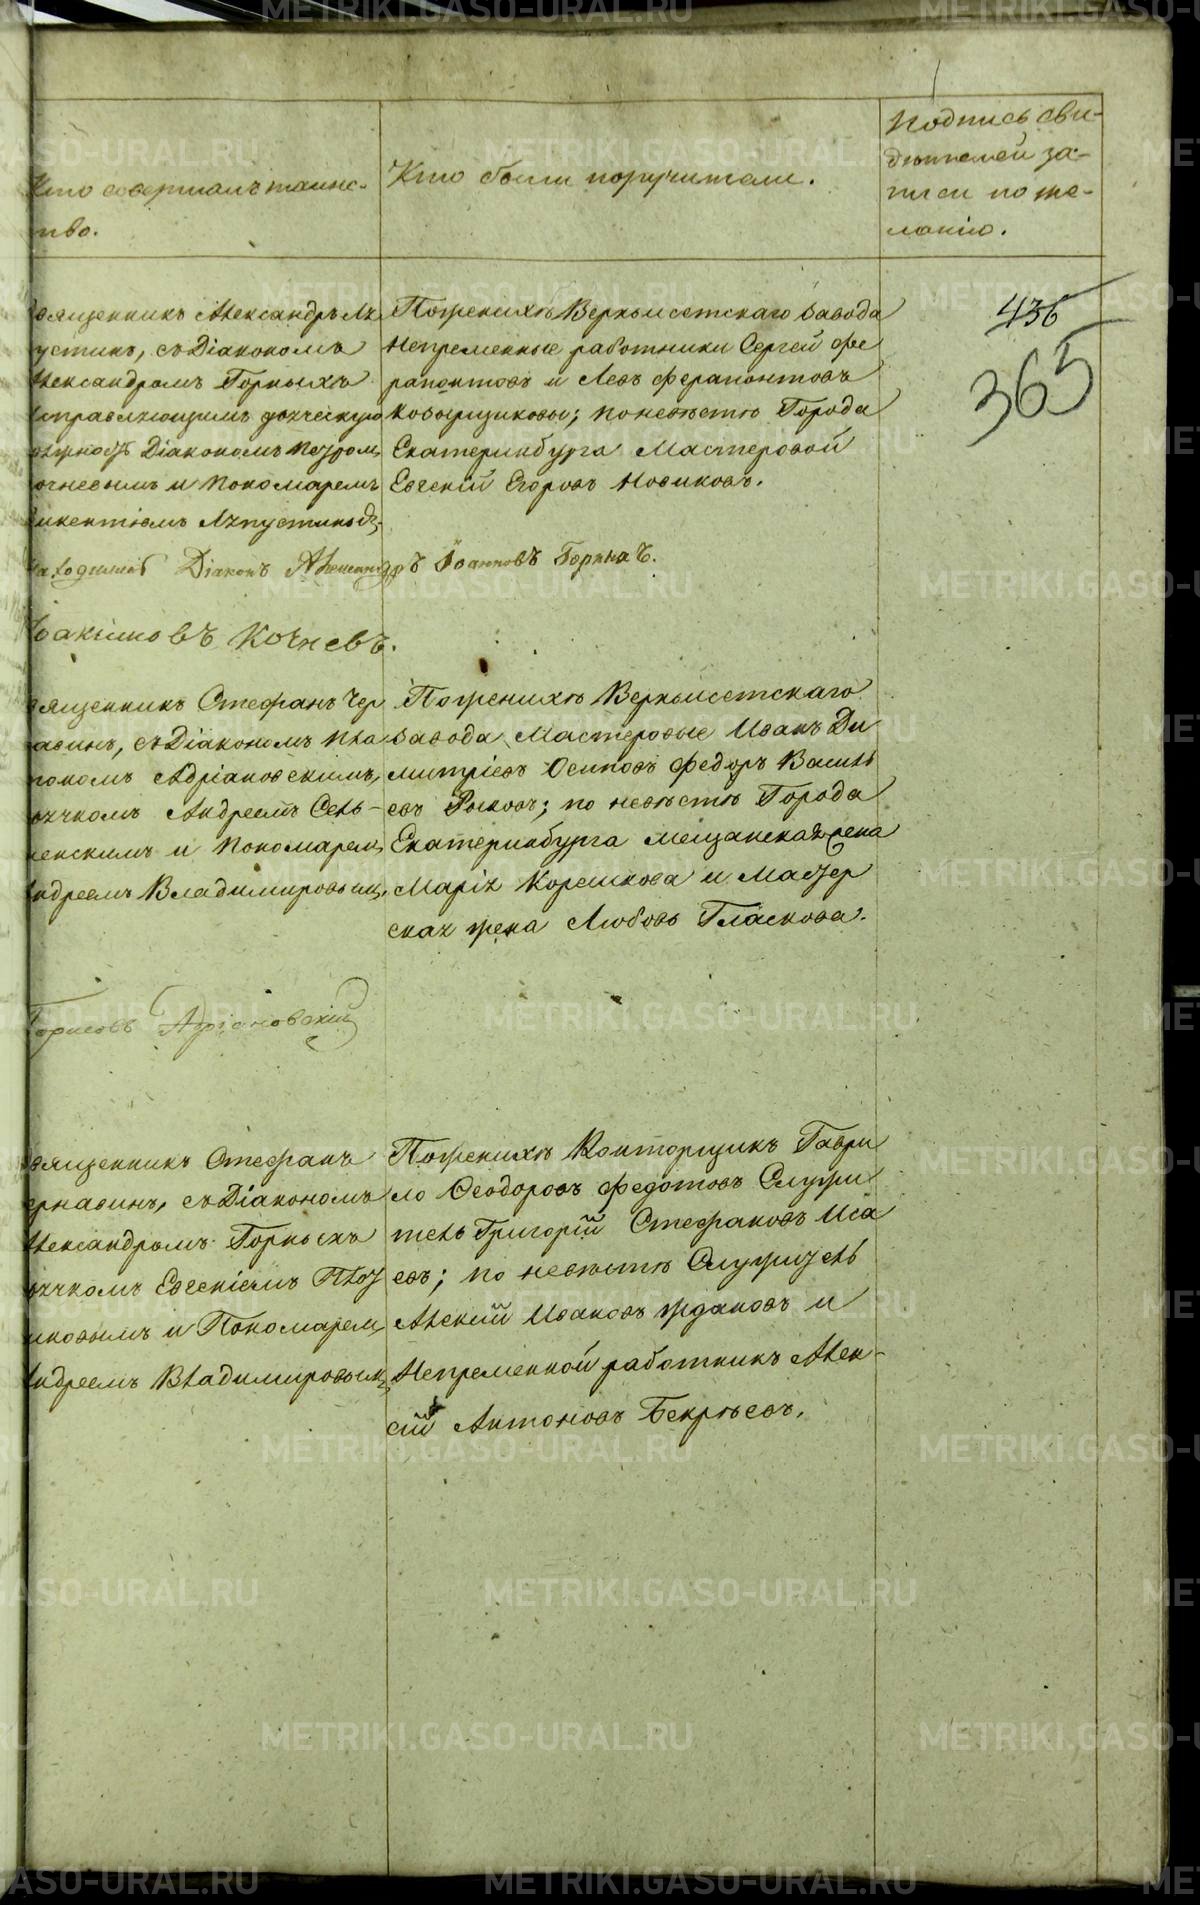 Кто совершалъ таинс-
тво.
Кто были поручители.
Подпись сви-
дѣтелей за-
писи по же-
ланію.
436
365
священникъ Александръ Ля
пустинъ, съ Діакономъ
Александромъ Горныхъ
исправляющимъ дьяческую
должность Діакономъ Петром
Кочневымъ и Пономаремъ
Викентіемъ Ляпустинымъ
По женихѣ Верхъисетскаго завода
Непременные работники Сергей Фе
рапонтовъ и Левъ Ферапонтовъ
Ковырщиковы; по невѣстѣ Города
Екатеринбурга Мастеровой
Евгеній Егоровъ Новиковъ.
находился Діаконъ Александръ Іоанновъ Горныхъ.
Іоакимовъ Кочневъ.
священникъ Стефанъ Чер
навинъ, съ Діакономъ Пла
тономъ Адріановскимъ,
дьячкомъ Андреемъ Сель-
менскимъ и Пономарем
Андреемъ Владимировым,
По женихѣ Верхъисетскаго
завода Мастеровые Иванъ Ди
митріевъ Осиповъ Федоръ Василь
евъ Рыковъ; по невѣстѣ Города
Екатеринбурга мещанская жена
Марія Корешкова и Мастер
ская жена Любовь Гласкова.
Борисовъ Адріановскій
священникъ Стефанъ
Чернавинъ, съ Діакономъ
Александромъ Горныхъ
дьячкомъ Евгеніемъ Плот
никовымъ и Пономарем
Андреемъ Владимировым,
По женихѣ Конторщикъ Гаври
ло Ѳеодоровъ Федотовъ Служи
тель Григорій Стефановъ Иса
евъ; по невѣстѣ Служитель
Алексій Ивановъ Ждановъ и
Непременной работникъ Алек-
сій Антоновъ Бекрѣевъ.
METRIKI.GASO-URAL.RU